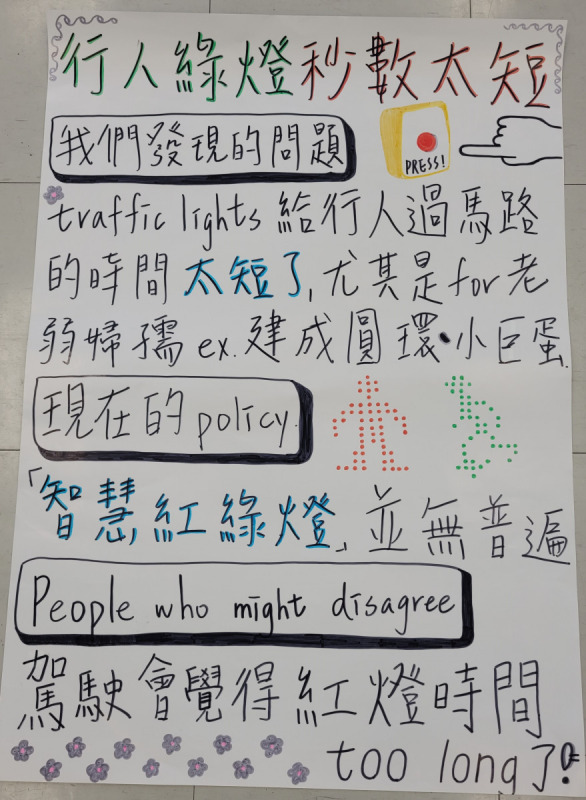 行人綠燈秒數太短
我們發現的問題
PRESS!
traffic lights 給行人過馬路
的時間 太短了, 尤其是for老
弱婦孺 ex. 建成圓環、小巨蛋.
現在的 policy.
「智慧紅綠燈」並無普遍
People who might disagree
駕駛會覺得紅燈時間
too long了!